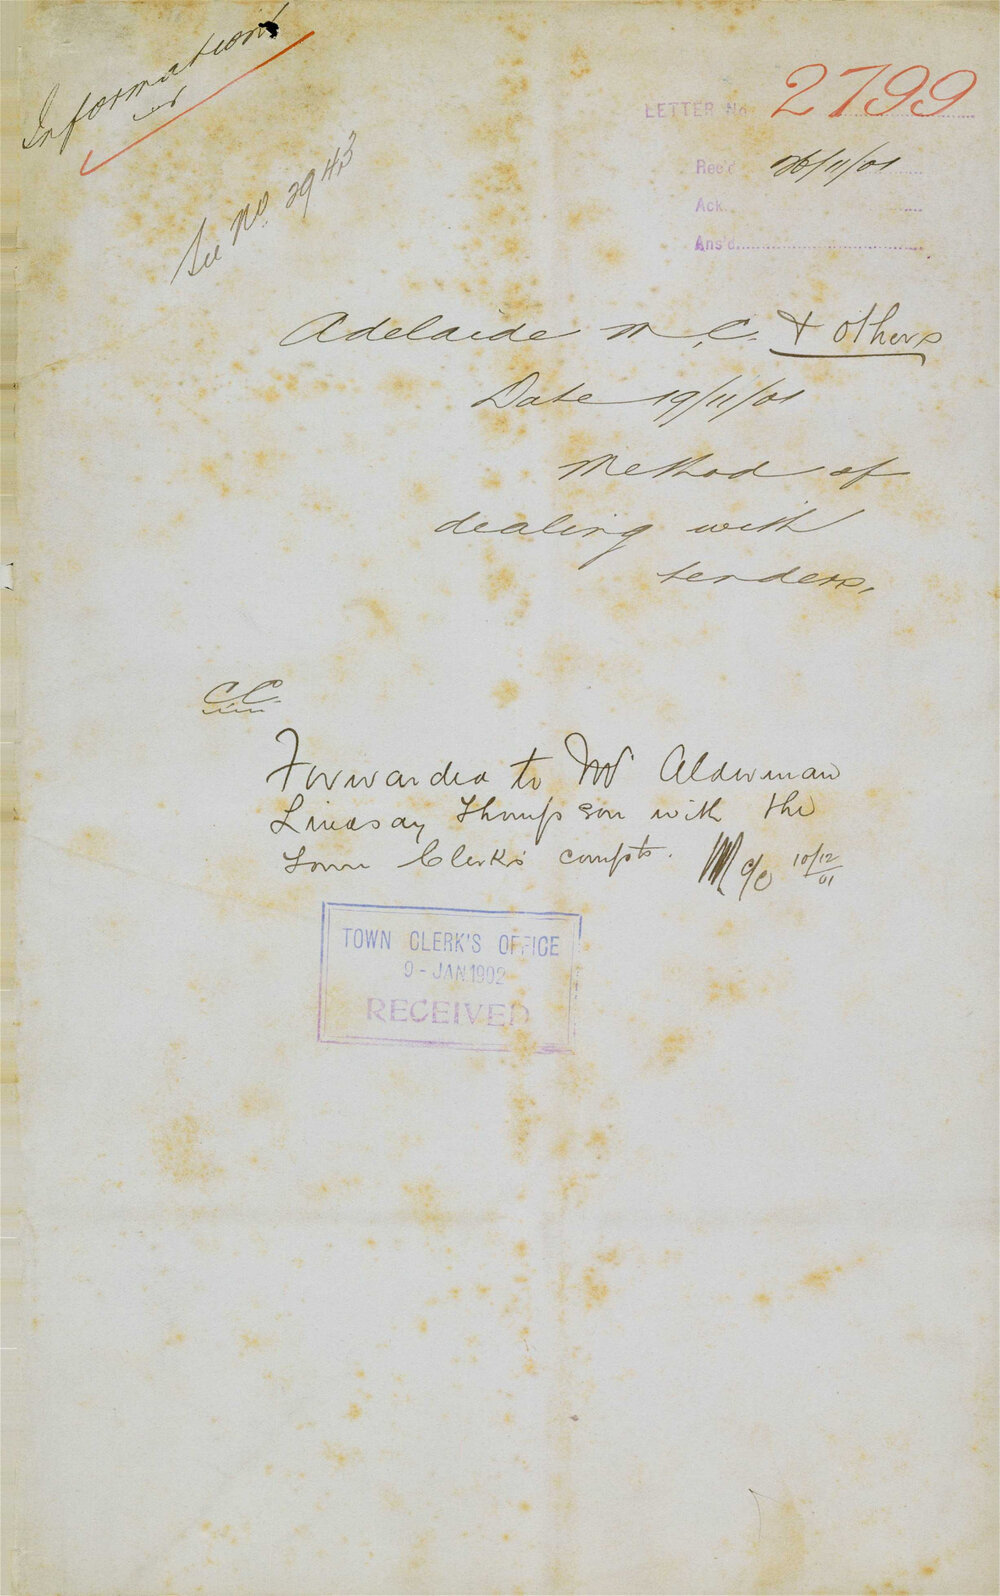 Information
See No. 2943
LETTER No. 2799
Rec'd 26/11/01
Ack.
Ans'd
Adelaide M. C. & others
Date 19/11/01
Method of
dealing with
tenders.
CC
Forwarded to Mr Alderman
Lindsay Thompson with the
Town Clerk's compts. 10/12/01
TOWN CLERK'S OFFICE
9 - JAN. 1902
RECEIVED